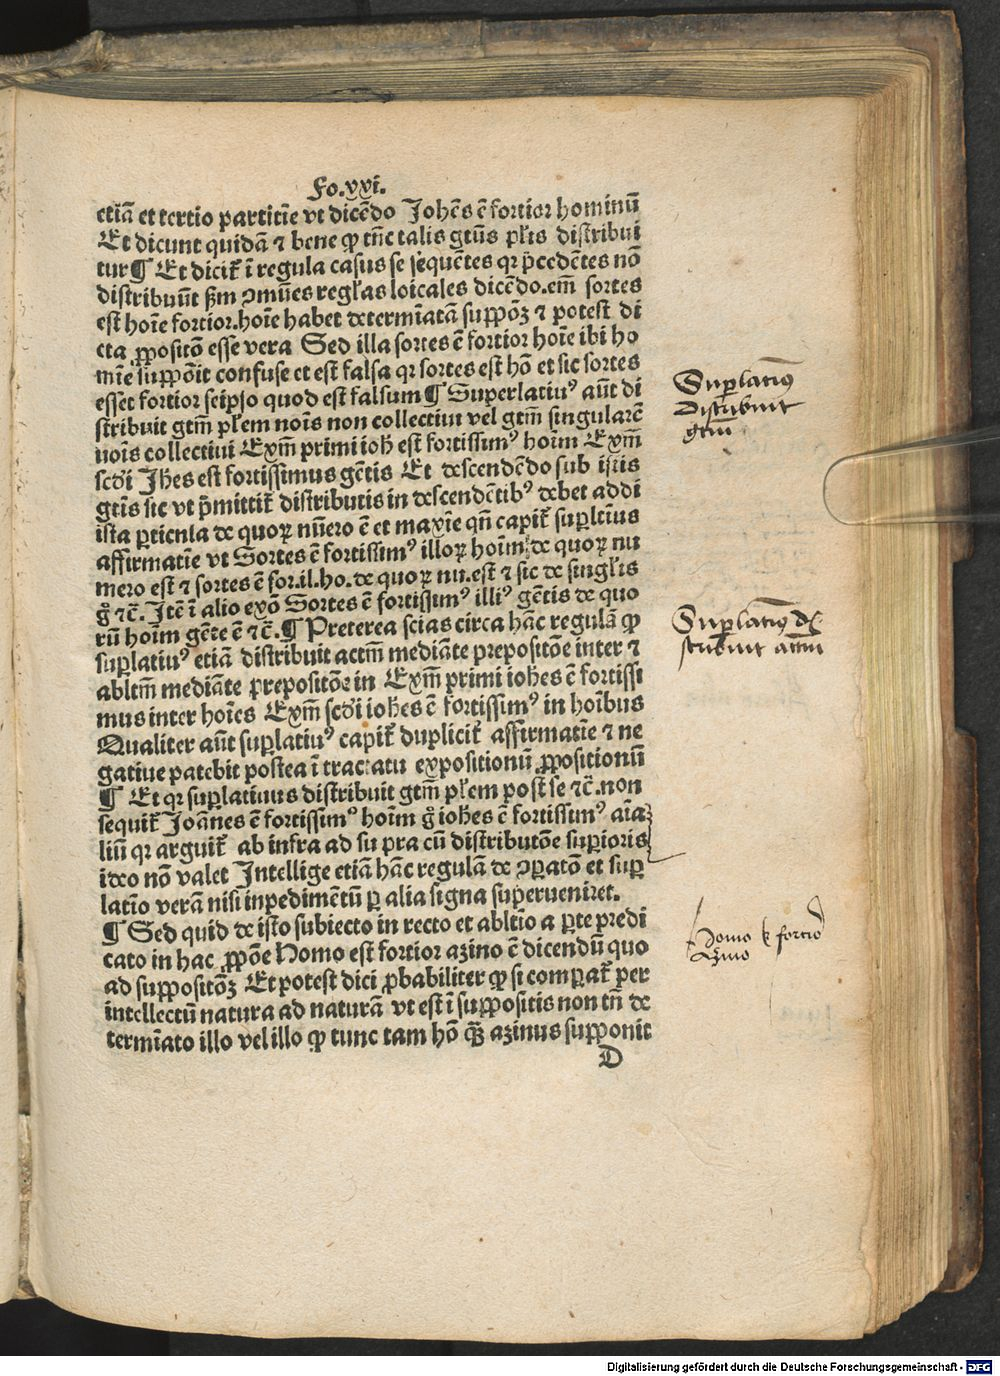 Fo.xxi.
etiā et tertio partitīe vt dicēdo Johēs ē fortior hominū
Et dicunt quidā ⁊ bene ꝙ tūc talis gtūs pl̄is distribui
tur¶ Et dicit̄ ī regula casus se sequētes qꝛ p̄cedētes nō
distribuūt ẜm ꝯmūes regl̄as loicales dicēdo.em̄ sortes
est hoīe fortior.hoīe habet determīatā suppōꝫ ⁊ potest di
cta ꝓpositō esse vera Sed illa sortes ē fortior hoīe ibi ho
mīe suppōit confuse et est falsa qꝛ sortes est hō et sic sortes
esset fortior seipso quod est falsum ¶ Superlatiuꝰ aūt di
stribuit gtm̄ pl̄em noīs non collectiui vel gtm̄ singularē
noīs collectiui Exm̄ primi ioh̄ est fortissimꝰ hoīm Exm̄
scd̄i Jh̄es est fortissimus gētis Et descendēdo sub istis
gtīs sic vt p̄mittit̄ distributis in descendētibꝰ debet addi
ista ꝑticula de quoꝝ nūero ē et maxīe qn̄ capit̄ suꝑltīus
affirmatīe vt Sortes ē fortissimꝰ illoꝝ hoīm de quoꝝ nu
mero est ⁊ sortes ē for.il.ho.de quoꝝ nu.est ⁊ sic de singl̄is
g̊ ⁊c̄. Itē ī alio exō Sortes ē fortissimꝰ illiꝰ gētis de quo
rū hoīm gēte ē ⁊c̄.¶ Preterea scias circa hāc regulā ꝙ
suꝑlatiuꝰ etiā distribuit actm̄ mediāte prepositōe inter ⁊
abltm̄ mediāte prepositōe in Exm̄ primi ioh̄es ē fortissi
mus inter hoīes Exm̄ scd̄i ioh̄es ē fortissimꝰ in hoībus
Qualiter aūt suꝑlatiuꝰ capit̄ duplicit̄ affirmatīe ⁊ ne
gatiue patebit postea ī tractatu expositionū ꝓpositionū
¶ Et qꝛ suꝑlatiuus distribuit gtm̄ pl̄em post se ⁊c̄.non
sequit̄ Joānes ē fortissimꝰ hoīm g̊ ioh̄es ē fortissimꝰ aīa
liū qꝛ arguit̄ ab infra ad su pra cū distributōe suꝑioris
ideo nō valet Intellige etiā hāc regulā de ꝯꝑatō et suꝑ
latīo verā nisi inpedimētū ꝑ alia signa superueniret.
¶ Sed quid de isto subiecto in recto et abltīo a ꝑte predi
cato in hac ꝓpōe Homo est fortior azino ē dicendū quo
ad suppositōꝫ Et potest dici ꝓbabiliter ꝙ si comparat̄ per
intellectū natura ad naturā vt est ī suppositis non tn̄ de
termīato illo vel illo ꝙ tunc tam hō qꝫ azinus supponit
D
Suꝑlatiuꝰ
Distribuit
gtm̄
Suꝑlatiuꝰ di
stribuit actm̄
Homo ē fortior
Azino
Digitalisierung gefördert durch die Deutsche Forschungsgemeinschaft - DFG